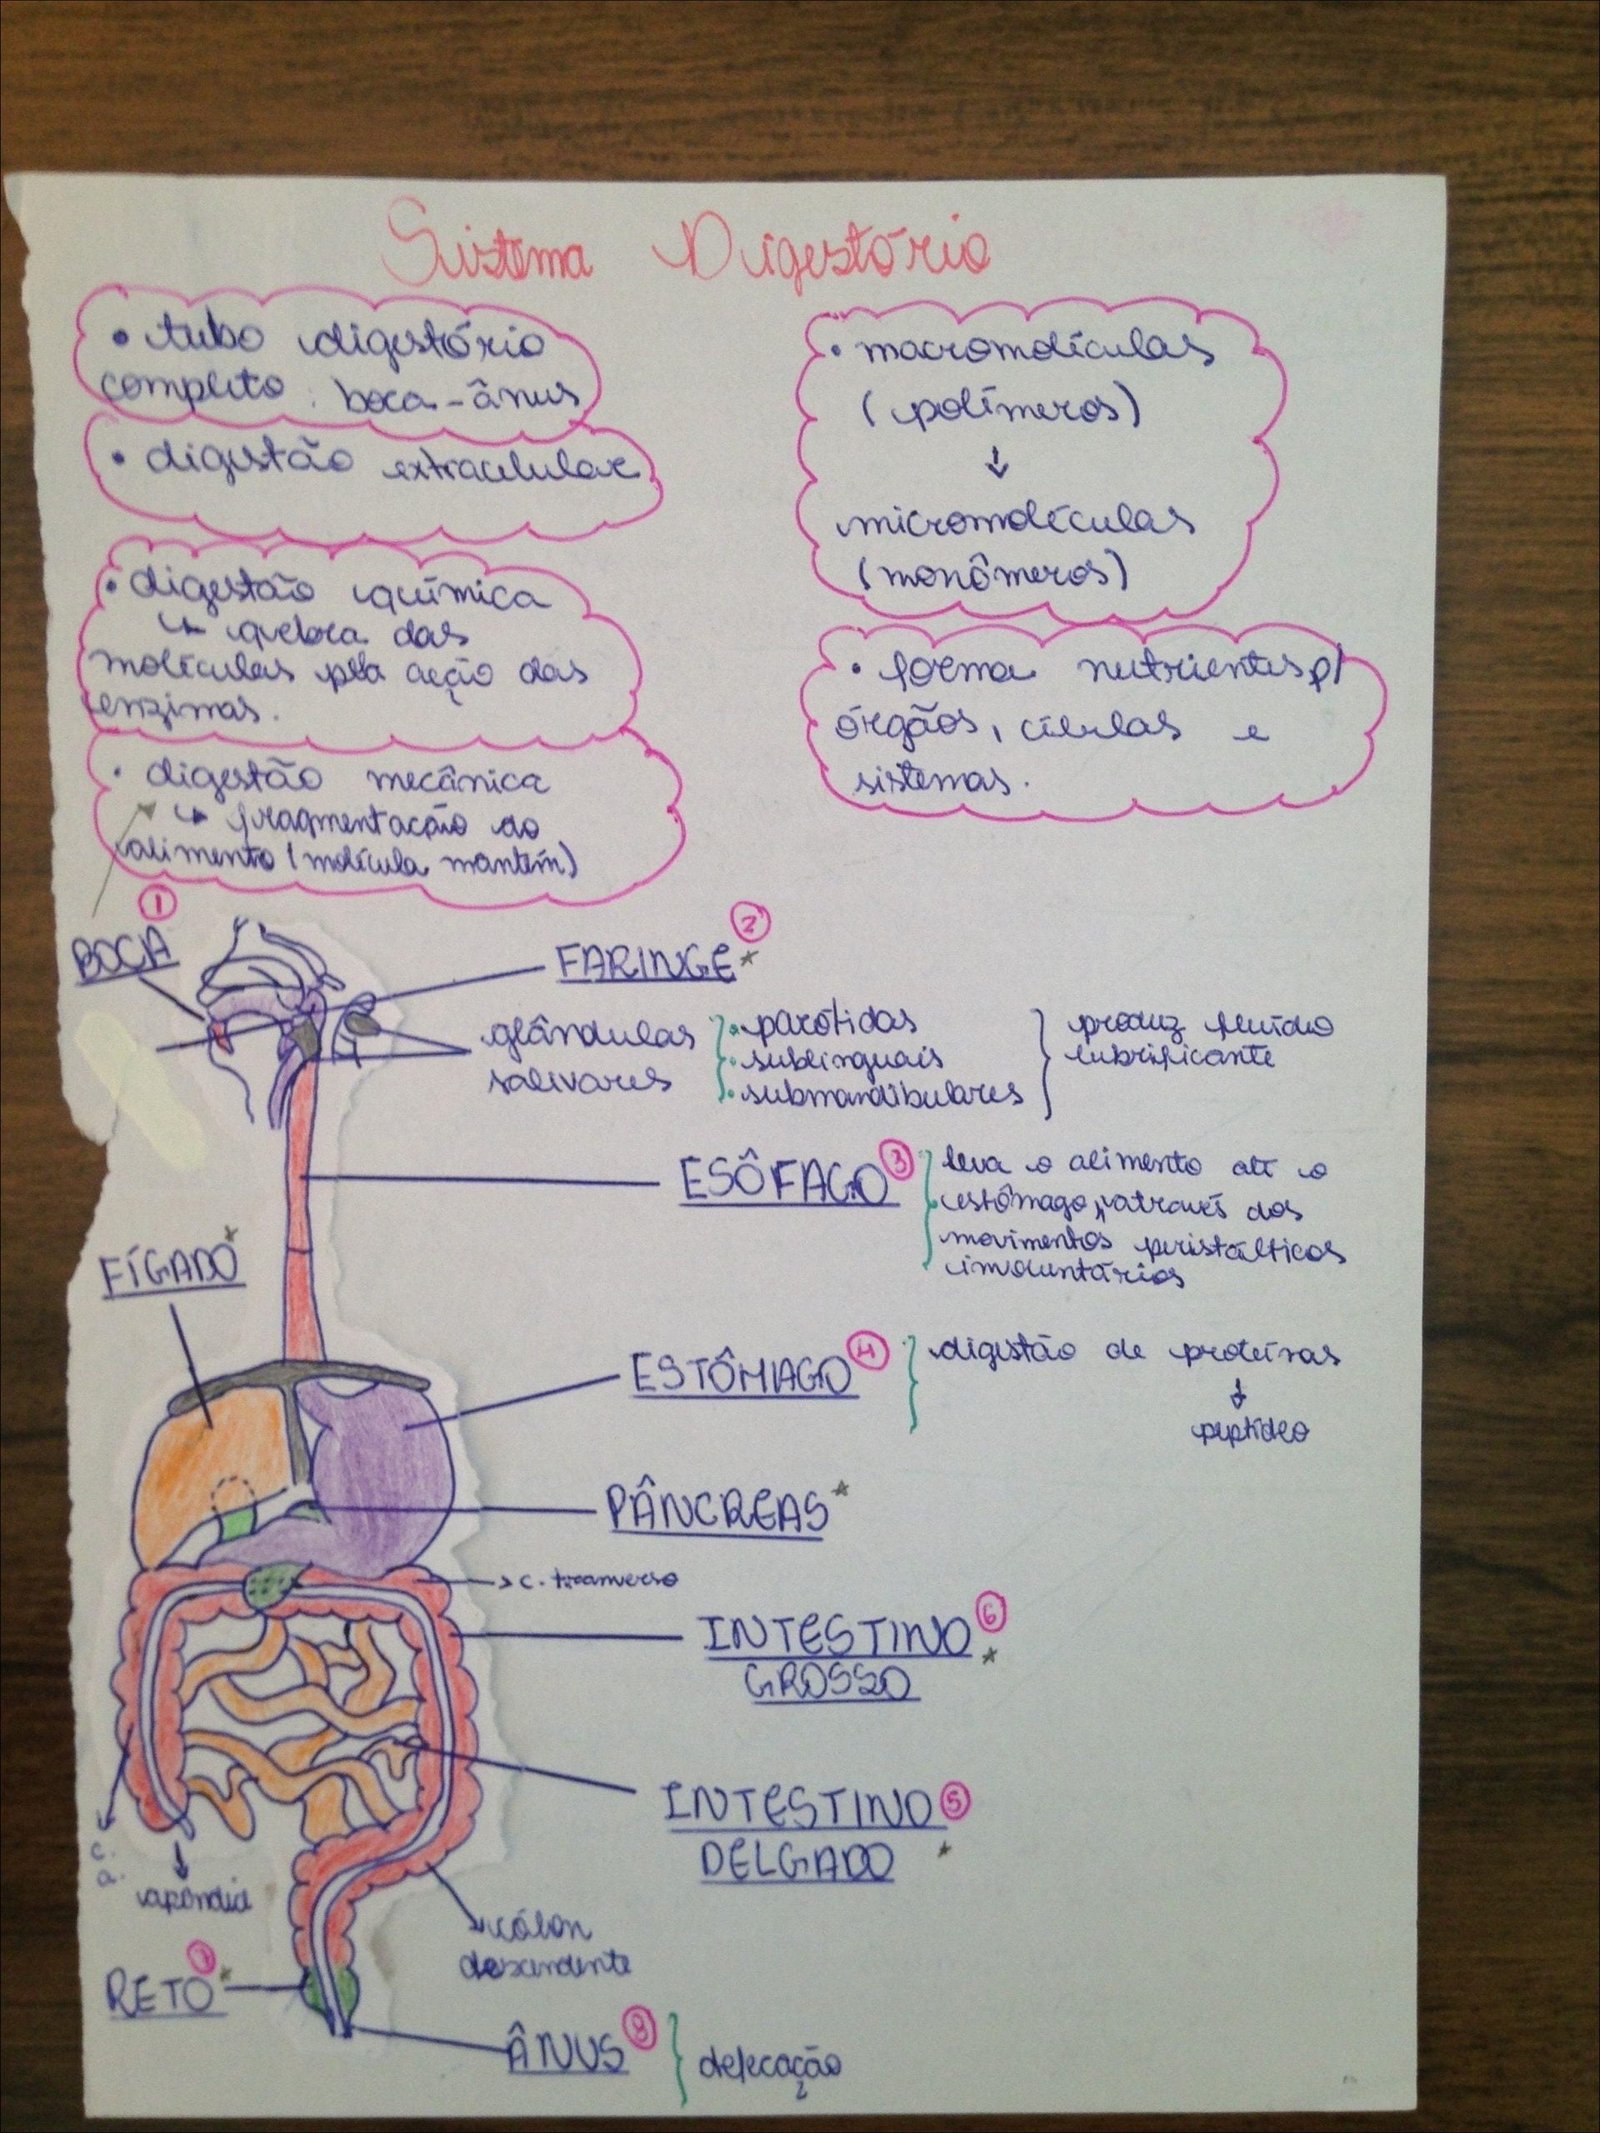 Sistema Digestório
• tubo digestório
completo: boca-ânus
• digestão extracelular
• digestão química
↳ quebra das
moléculas pela acção das
enzimas.
• digestão mecânica
↳ fragmentação do
alimento (molécula mantém)
• macromoléculas
(polímeros)
↓
micromoléculas
(monômeros)
• forma nutrientes p/
órgãos, células e
sistemas.
BOCA 1
FARINGE* 2
glândulas
salivares
• parótidas
• sublinguais
• submandibulares
produz fluído
lubrificante
ESÔFAGO 3
leva o alimento até o
estômago, através dos
movimentos peristálticos
involuntários
FÍGADO*
ESTÔMAGO 4
digestão de proteínas
↓
peptídeo
PÂNCREAS*
→ c. tranverso
INTESTINO 6
GROSSO *
INTESTINO 5
DELGADO *
c.
a.
apêndice
cólon
descendente
RETO* 7
ÂNUS 8
defecação